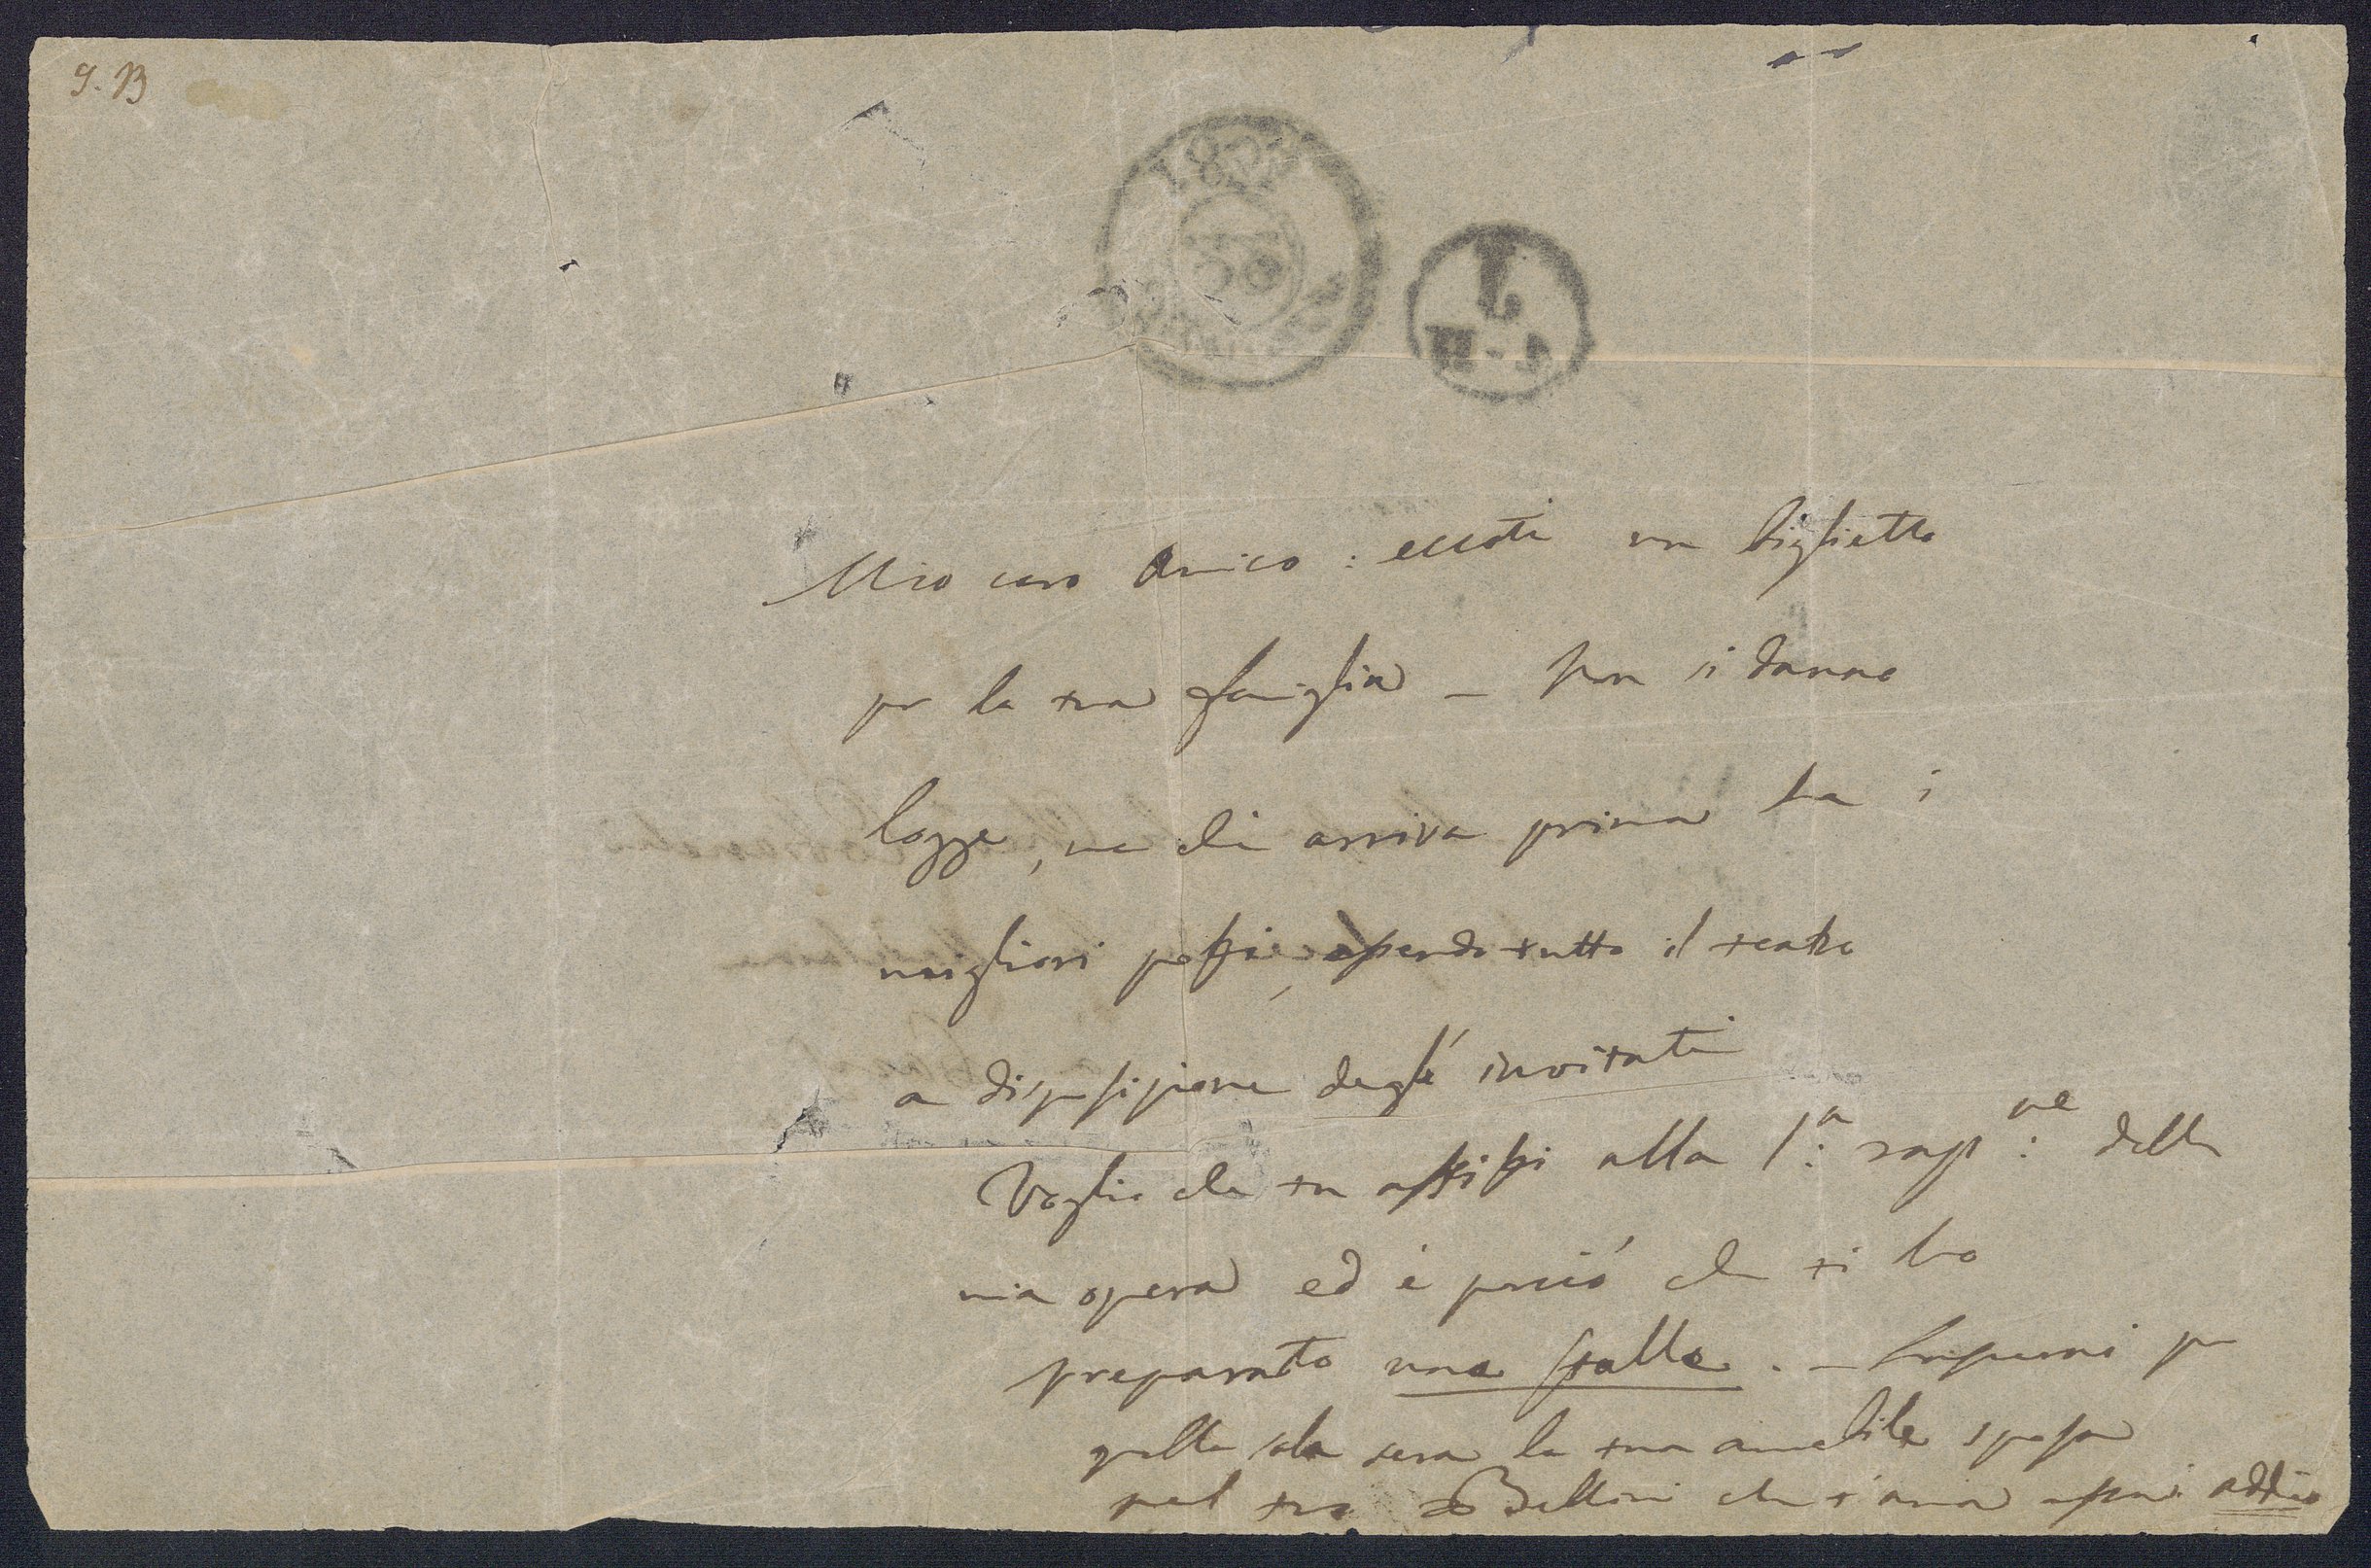 G. B
Mio caro Amico: eccoti un biglietto
per la tua famiglia – Non si danno
logge, ma chi arriva prima ha i
migliori posti, essendo tutto il teatro
a disposizione degl' invitati
Voglio che tu assisti alla 1:a rap:ne della
mia opera ed è perciò che ti ho
preparato una stalle. –
quella sola sera la tua amabile sposa
pel tuo Bellini che t'ama assai addio